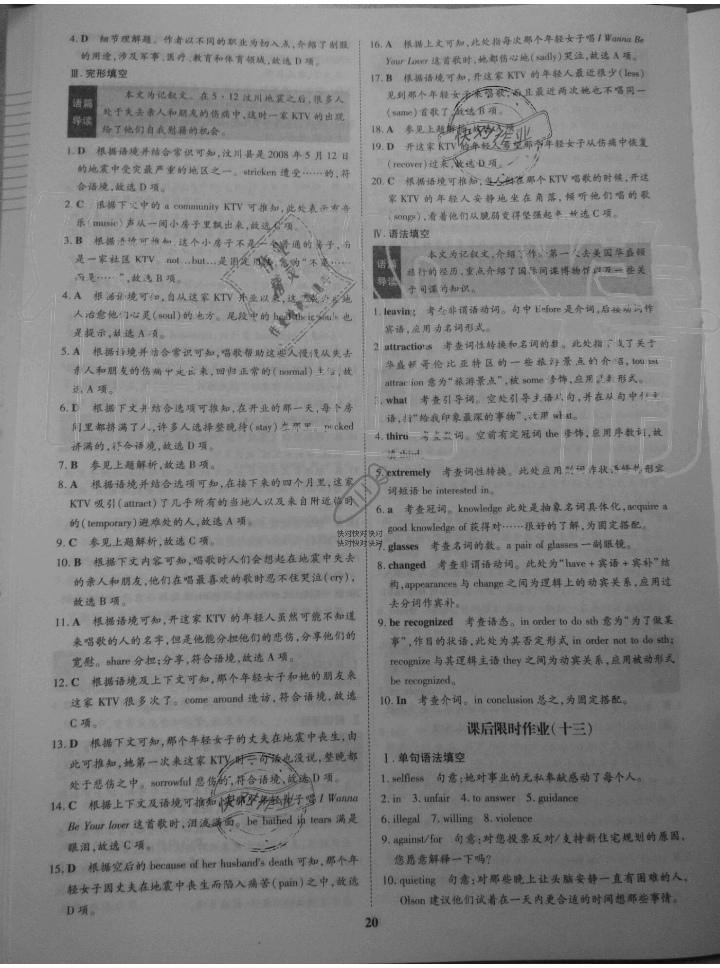 4. D 细节理解题。作者以不同的职业为切入点,介绍了制服
的用途,涉及军事、医疗、教育和体育领域,故选D项。
Ⅲ. 完形填空
语篇
导读
本文为记叙文。在5·12汶川地震之后,很多人
处于失去亲人和朋友的伤痛中,这时一家KTV的出现
给了他们自我慰藉的机会。
1. D 根据语境并结合常识可知,汶川县是2008年5月12日
的地震中受灾最严重的地区之一。stricken 遭受……的,符
合语境,故选D项。
2. C 根据下文中的a community KTV可推知,此处表示有音
乐(music)声从一间小房子里飘出来,故选C项。
3. B 根据语境可推知,这个小房子不是一个普通的房子,而
是一家社区KTV。not…but…是固定用法,意为“不是……
而是……”,故选B项。
4. A 根据语境可知,自从这家KTV开业以来,这里成为当地
人治愈他们心灵(soul)的地方。尾段中的heal their souls也
是提示,故选A项。
5. A 根据语境并结合常识可知,唱歌帮助这些人慢慢从失去
亲人和朋友的伤痛中走出来,回归正常的(normal)生活,故
选A项。
6. D 根据下文并结合选项可推知,在开业的那一天,每个房
间里都挤满了人,许多人选择整晚待(stay)在那里。packed
挤满的,符合语境,故选D项。
7. B 参见上题解析,故选B项。
8. A 根据语境并结合选项可推知,在接下来的四个月里,这家
KTV吸引(attract)了几乎所有的当地人以及来自附近临时
的(temporary)避难处的人,故选A项。
9. C 参见上题解析,故选C项。
10. B 根据下文内容可知,唱歌时人们会想起在地震中失去
的亲人和朋友,他们在唱最喜欢的歌时忍不住哭泣(cry),
故选B项。
11. A 根据语境可知,开这家KTV的年轻人虽然可能不知道
来唱歌的人的名字,但是他能分担他们的悲伤,分享他们的
宽慰。share分担;分享,符合语境,故选A项。
12. C 根据语境及下文可知,那个年轻女子和她的朋友来
这家KTV很多次了。come around 造访,符合语境,故选
C项。
13. D 根据下文可知,那个年轻女子的丈夫在地震中丧生,由
此可推知,她第一次来这家KTV时一句话也没说,整晚都
处于悲伤之中。sorrowful 悲伤的,符合语境,故选D项。
14. C 根据上下文及语境可推知,那个年轻女子唱I Wanna
Be Your lover这首歌时,泪流满面。be bathed in tears 满是
眼泪,故选C项。
15. D 根据空后的because of her husband's death可知,那个年
轻女子因丈夫在地震中丧生而陷入痛苦(pain)之中,故选
D项。
16. A 根据上文可知,此处指每次那个年轻女子唱I Wanna Be
Your Lover这首歌时,她都伤心地(sadly)哭泣,故选A项。
17. B 根据语境可知,开这家KTV的年轻人最近很少(less)
见到那个年轻女子来唱歌,而且最近两次她也不唱同一
(same)首歌了,故选B项。
18. A 参见上题解析,故选A项。
19. D 开这家KTV的年轻人希望那个年轻女子从伤痛中恢复
(recover)过来,故选D项。
20. C 根据语境可推知,当人们在那个KTV唱歌的时候,开这
家KTV的年轻人安静地坐在角落,倾听他们唱的歌
(songs),看着他们从脆弱变得坚强起来,故选C项。
Ⅳ. 语法填空
语篇
导读
本文为记叙文,介绍了作者第一次去美国华盛顿
旅行的经历,重点介绍了国际间谍博物馆以及一些关
于间谍的知识。
1. leaving 考查非谓语动词。句中Before是介词,后接动词作
宾语,应用动名词形式。
2. attractions 考查词性转换和名词的数。此处指了解了关于
华盛顿哥伦比亚特区的一些旅游景点的介绍,tourist
attraction意为“旅游景点”,被some修饰,应用复数形式。
3. what 考查引导词。空处引导主语从句,并在从句中作主
语,指“给我印象最深的事物”,故用what。
4. third 考查数词。空前有定冠词the修饰,应用序数词,故
填third。
5. extremely 考查词性转换。此处应用副词作状语修饰形容
词短语be interested in。
6. a 考查冠词。knowledge此处是抽象名词具体化,acquire a
good knowledge of获得对……很好的了解,为固定搭配。
7. glasses 考查名词的数。a pair of glasses一副眼镜。
8. changed 考查非谓语动词。此处为“have+宾语+宾补”结
构,appearances与change之间为逻辑上的动宾关系,应用过
去分词作宾补。
9. be recognized 考查语态。in order to do sth意为“为了做某
事”,作目的状语,此处为其否定形式in order not to do sth;
recognize与其逻辑主语they之间为动宾关系,应用被动形式
be recognized。
10. In 考查介词。in conclusion总之,为固定搭配。
课后限时作业(十三)
Ⅰ. 单句语法填空
1. selfless 句意:她对事业的无私奉献感动了每个人。
2. in 3. unfair 4. to answer 5. guidance
6. illegal 7. willing 8. violence
9. against/for 句意:对您投票反对/支持新住宅规划的原因,
您愿意解释一下吗?
10. quieting 句意:对那些晚上让头脑安静一直有困难的人,
Olson建议他们试着在一天内更合适的时间想那些事情。
快对快对快对
快对快对快对
快对作业
快对作业
20